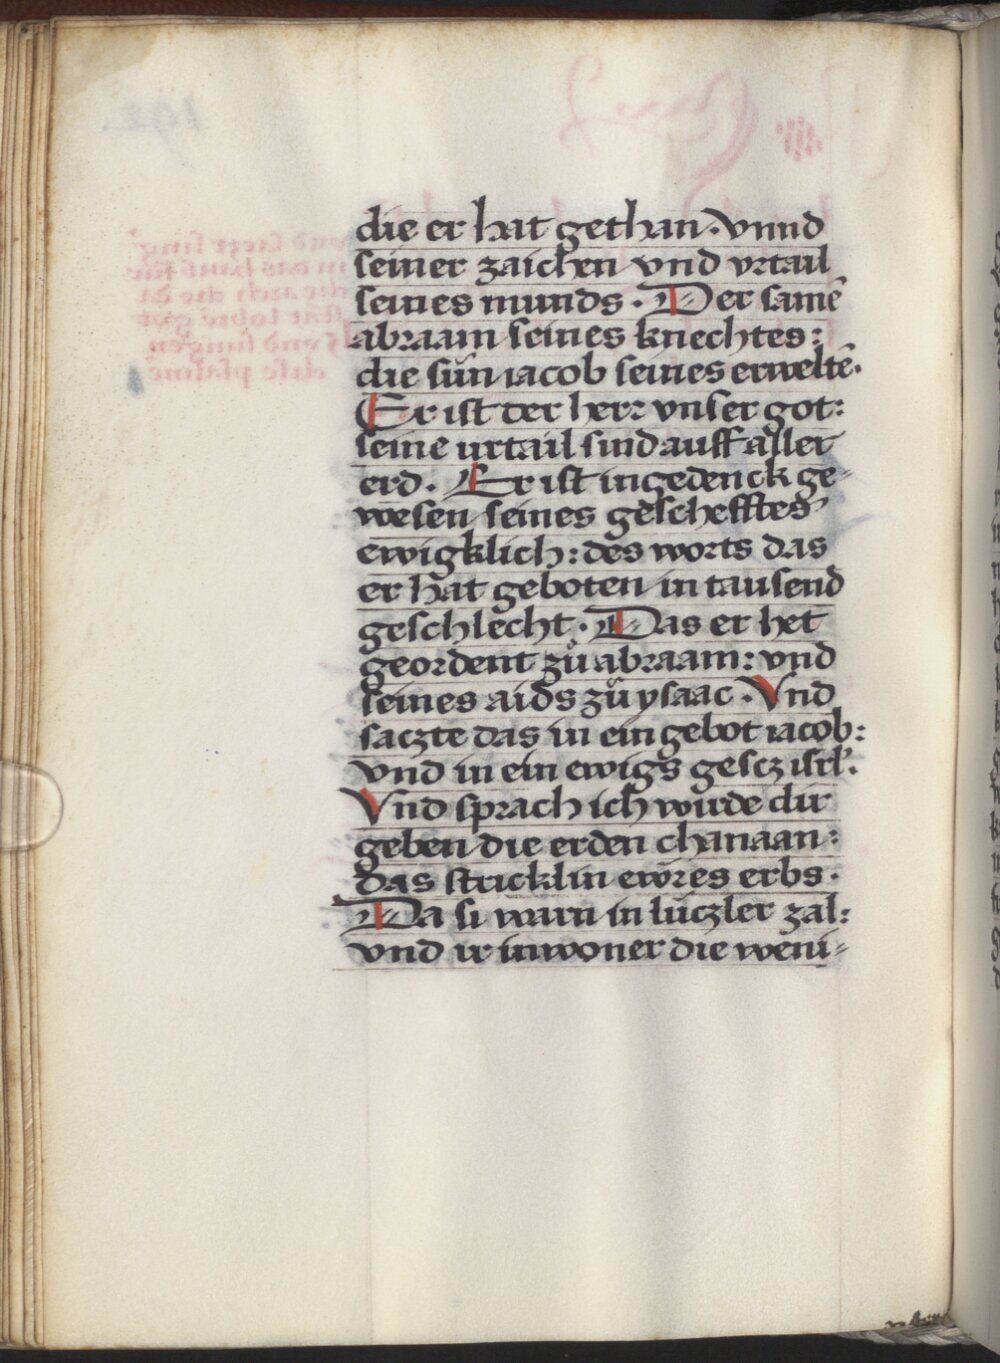 die er hat gethan. vnnd
seiner zaichen vnd vrtail
seines munds. Der samē
abraam seines knechtes:
die sün iacob seines erweltē.
Er ist der herr vnser got:
seine urtail sind auff aller
erd. Er ist ingedenck ge-
wesen seines geschefftes
ewigklich: des worts das
er hat geboten in tausend
geschlecht. Das er het
geordent zů abraam: vnd
seines aids zů ysaac. Vnd
saczte das in ein gebot iacob:
vnd in ein ewigs gescz isrl'.
Vnd sprach ich wurde dir
geben die erden chanaan:
das stricklin ewres erbs.
Da si warn in lüczler zal:
vnd ir inwoner die weni-